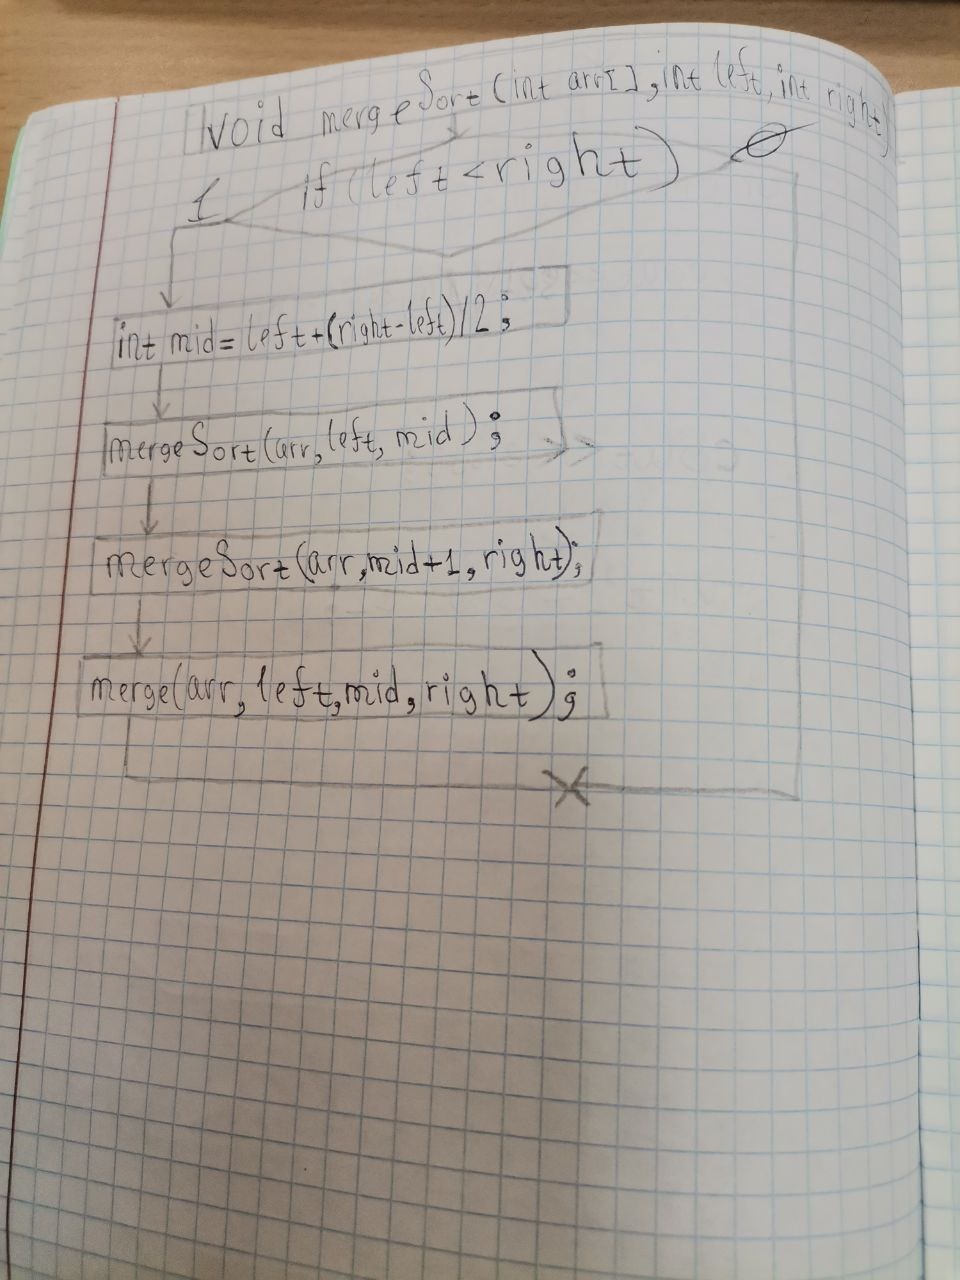 void mergeSort (int arr[], int left, int right)
if (left < right)
1 0
int mid = left + (right - left) / 2 ;
mergeSort (arr, left, mid) ;
mergeSort (arr, mid+1, right);
merge(arr, left, mid, right) ;